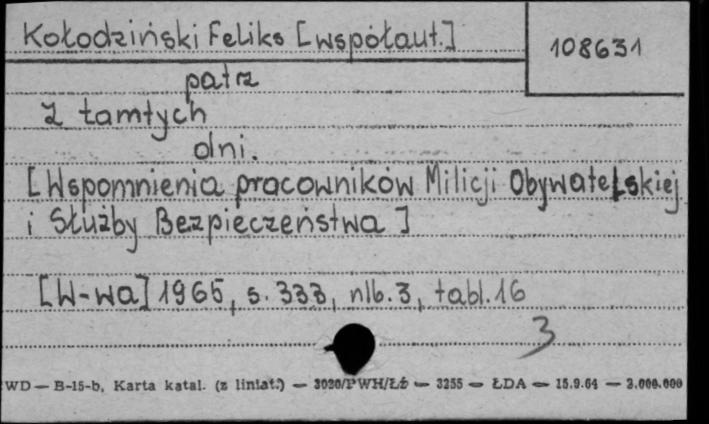 Kołodziński Feliks [współaut.]
108631
patrz
Z tamtych
dni.
[Wspomnienia pracowników Milicji Obywatelskiej
i Służby Bezpieczeństwa]
[W-wa] 1965, s. 333, nlb. 3, tabl. 16
3
WD — B-15-b, Karta katal. (z liniat.) — 3020/PWH/Łó — 3255 — ŁDA — 15.9.64 — 2.000.000